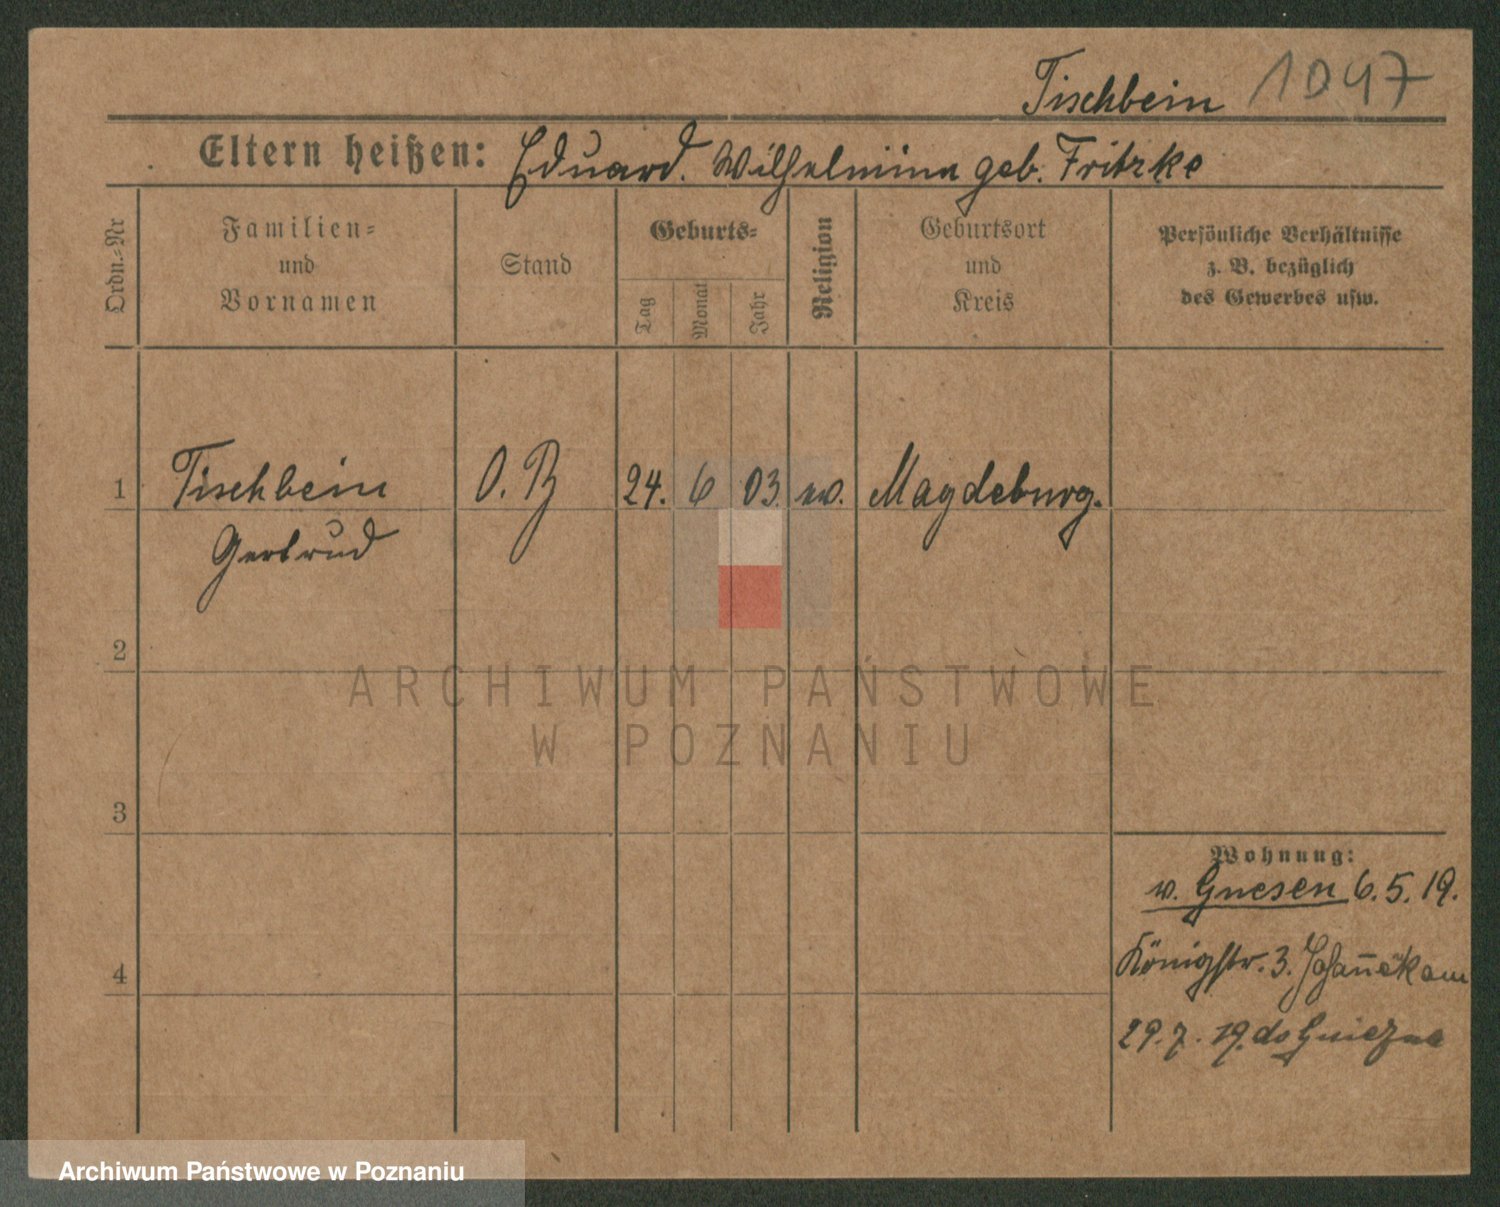 Tischbein 1047
Eltern heißen: Eduard. Wilhelmina geb. Fritzke
Ordn.-Nr
Familien-
und
Vornamen
Stand
Geburts-
Tag
Monat
Jahr
Religion
Geburtsort
und
Kreis
Persönliche Verhältnisse
z. B. bezüglich
des Gewerbes usw.
1 Tischbein O. B 24. 6 03. ev. Magdeburg.
Gertrud
2
3
4
Wohnung:
v. Gnesen 6. 5. 19.
Königstr. 3.
29. 7. 19. do Gniezna
ARCHIWUM PAŃSTWOWE
W POZNANIU
Archiwum Państwowe w Poznaniu